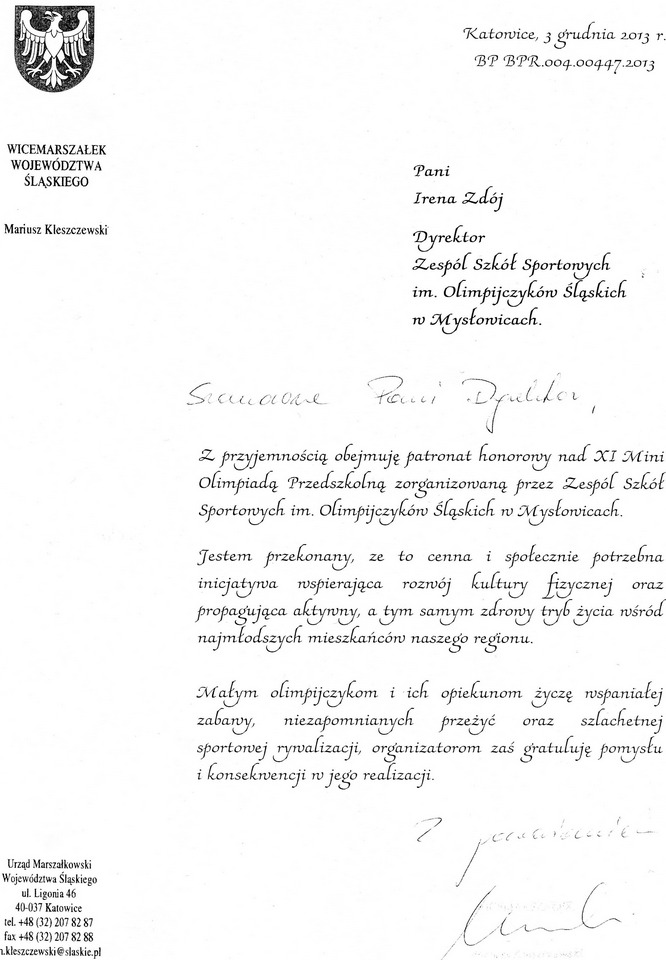 Katowice, 3 grudnia 2013 r.
BP BPR.004.00447.2013
WICEMARSZAŁEK
WOJEWÓDZTWA
ŚLĄSKIEGO
Mariusz Kleszczewski
Pani
Irena Zdój
Dyrektor
Zespól Szkół Sportowych
im. Olimpijczyków Śląskich
w Mysłowicach.
Szanowna Pani Dyrektor,
Z przyjemnością obejmuję patronat honorowy nad XI Mini
Olimpiadą Przedszkolną zorganizowaną przez Zespól Szkół
Sportowych im. Olimpijczyków Śląskich w Mysłowicach.
Jestem przekonany, ze to cenna i społecznie potrzebna
inicjatywa wspierająca rozwój kultury fizycznej oraz
propagująca aktywny, a tym samym zdrowy tryb życia wśród
najmłodszych mieszkańców naszego regionu.
Małym olimpijczykom i ich opiekunom życzę wspaniałej
zabawy, niezapomnianych przeżyć oraz szlachetnej
sportowej rywalizacji, organizatorom zaś gratuluję pomysłu
i konsekwencji w jego realizacji.
Z poważaniem
Urząd Marszałkowski
Województwa Śląskiego
ul. Ligonia 46
40-037 Katowice
tel. +48 (32) 207 82 87
fax +48 (32) 207 82 88
m.kleszczewski@slaskie.pl